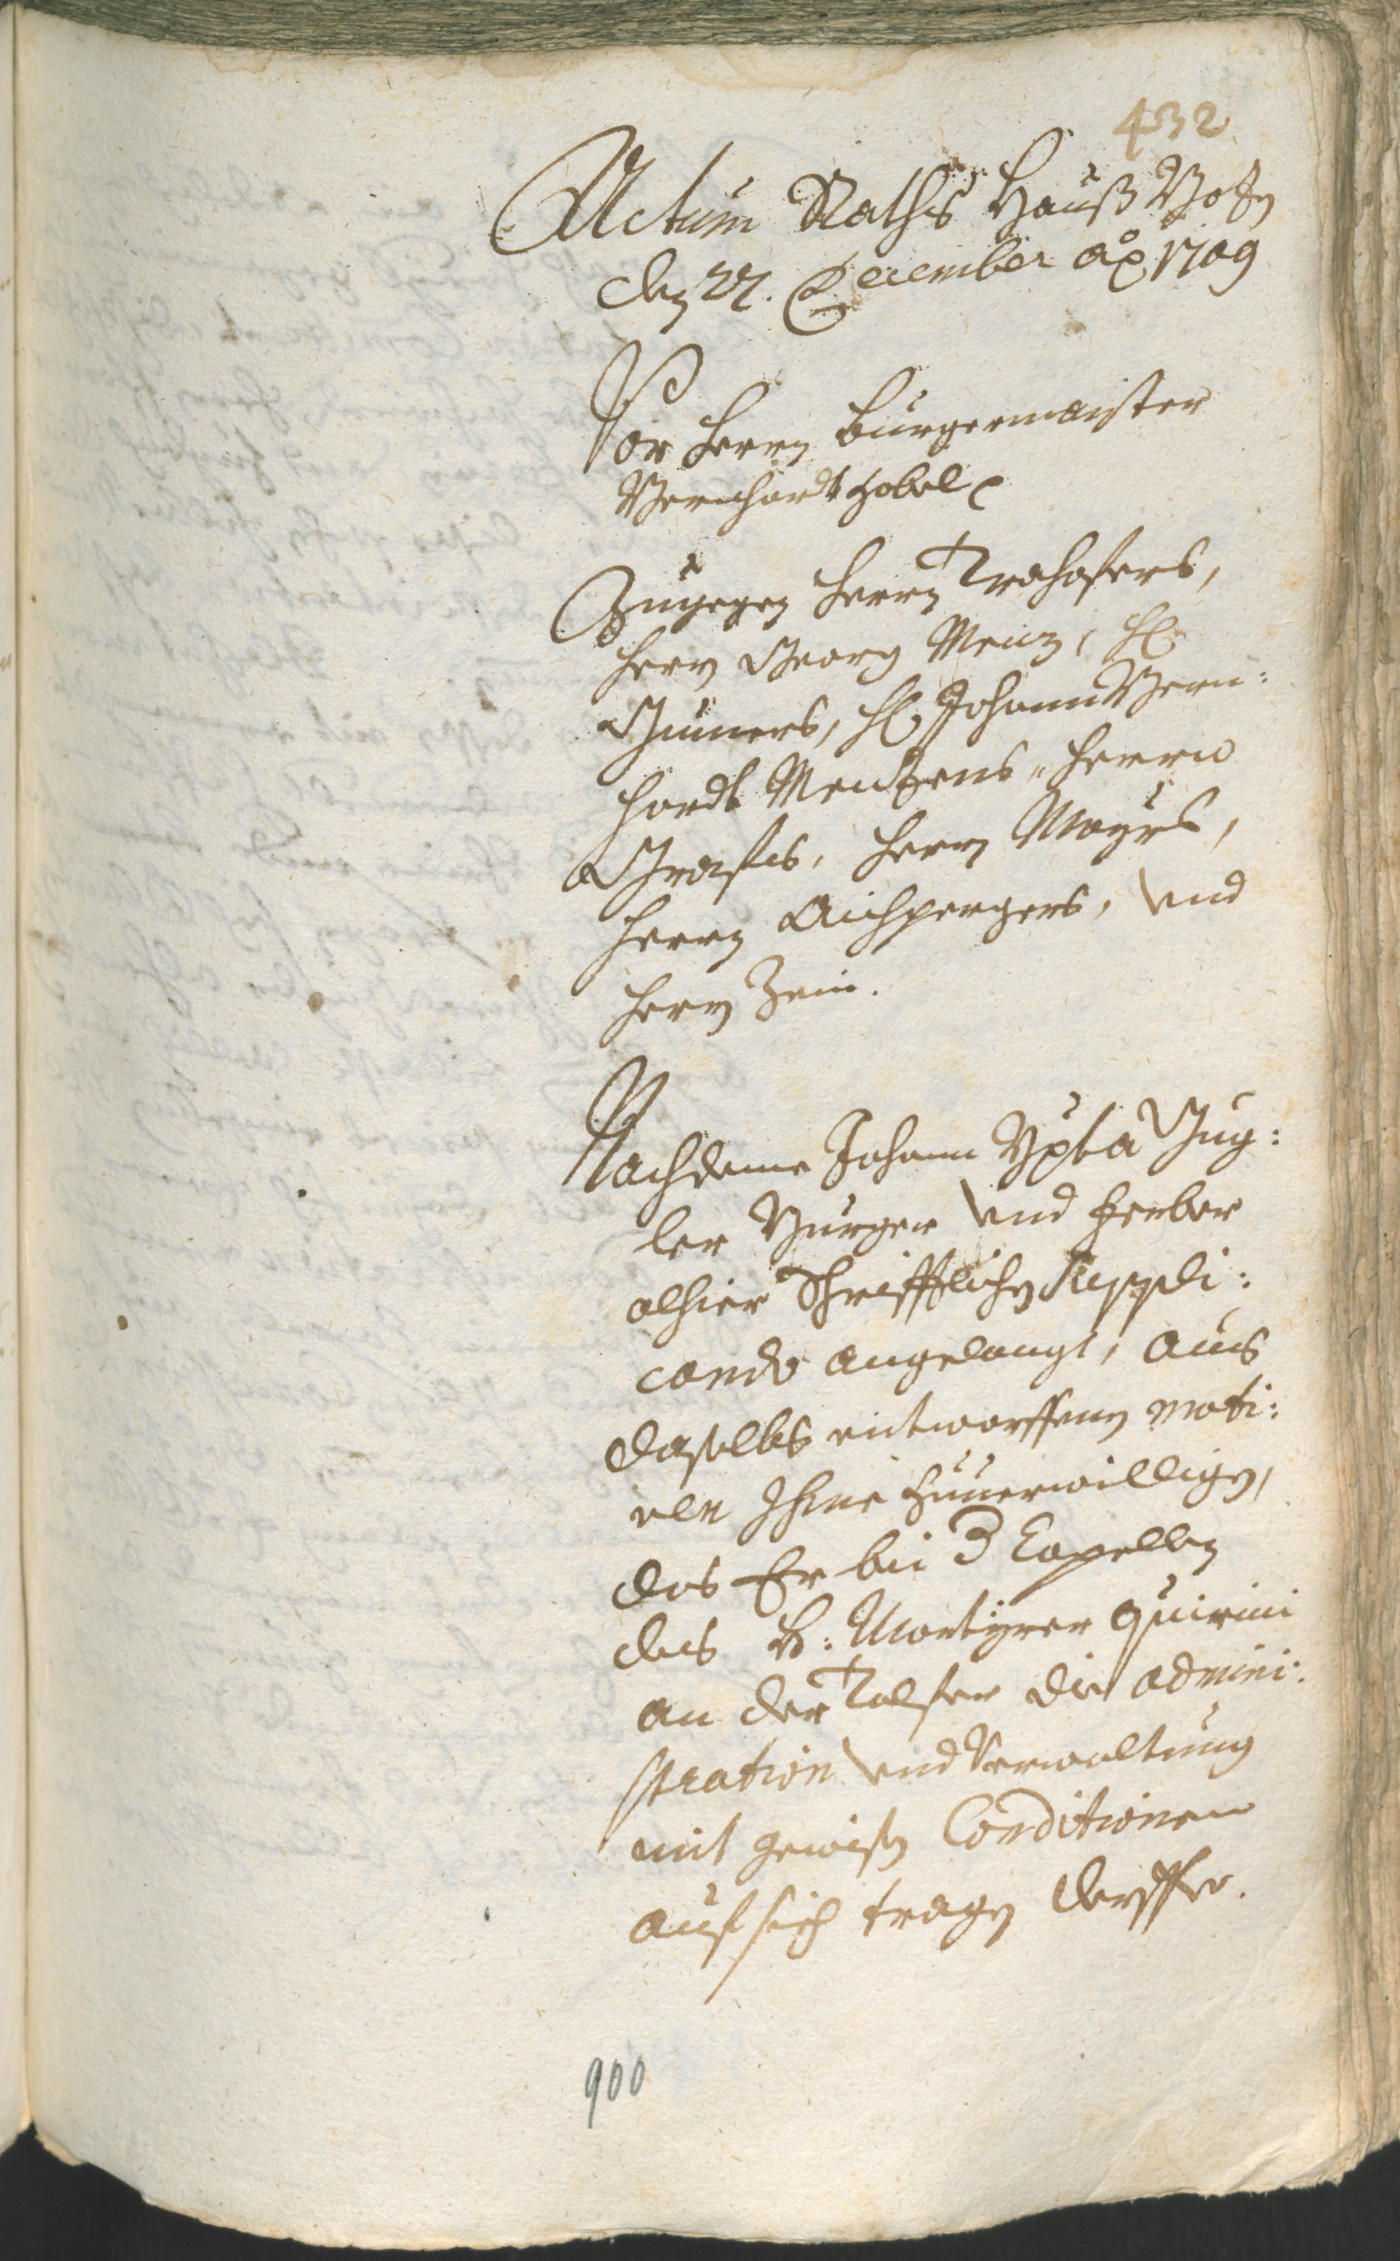 432
Actum Raths Hauß Bozn
den 27. December ao 1709
Vor Herrn Burgermaister
Bernhardt Hobel
Zugegen Herrn Trohofers,
Herrn Georg Menz, H:
Gumers, H: Johann Bern:
hardt Mentzens, Herrn
Grafis, Herrn Mayrs,
Herrn Aichpergers, vnd
Herrn Zein.
Nachdeme Johann Bpta Gug:
ler Burger vnd Ferber
alhier Schrifftlichen Suppli:
cando angelangt, aus
daselbs entworffnen moti:
ven Ihme zuuerwilligen,
das Er bei Capellen
des H: Martyrer Quirini
an der Talfer die admini:
stration vnd Verwaltung
mit gewissen Conditionen
auf sich tragen derffte.
900